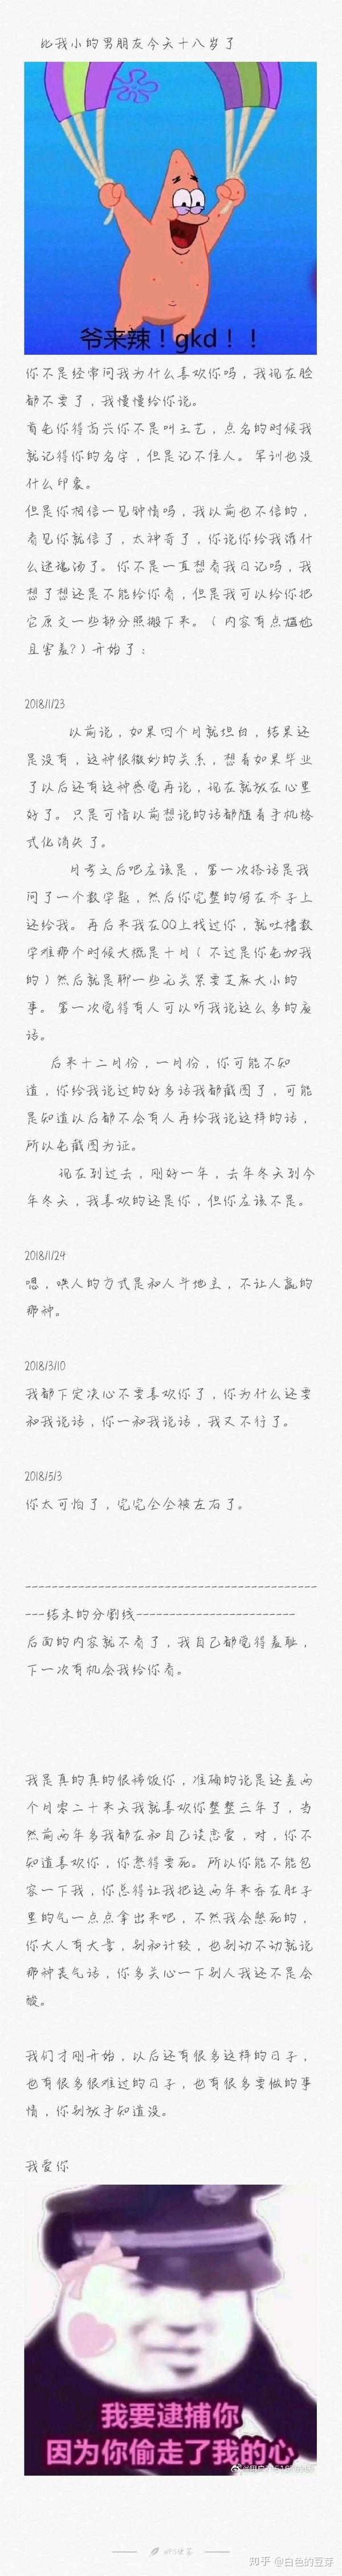 比我小的男朋友今天十八岁了
爷来辣！gkd！！
你不是经常问我为什么喜欢你吗，我现在脸
都不要了，我慢慢给你说。
首先你得高兴你不是叫王艺，点名的时候我
就记得你的名字，但是记不住人。军训也没
什么印象。
但是你相信一见钟情吗，我以前也不信的，
看见你就信了，太神奇了，你说你给我灌什
么迷魂汤了。你不是一直想看我日记吗，我
想了想还是不能给你看，但是我可以给你把
它原文一些部分照搬下来。（内容有点尴尬
且害羞?）开始了：
2018/1/23
以前说，如果四个月就坦白，结果还
是没有，这种很微妙的关系，想着如果毕业
了以后还有这种感觉再说，现在就放在心里
好了。只是可惜以前想说的话都随着手机格
式化消失了。
月考之后吧应该是，第一次搭话是我
问了一个数学题，然后你完整的写在本子上
还给我。再后来我在QQ上找过你，就吐槽数
学难那个时候大概是十月（不过是你先加我
的）然后就是聊一些无关紧要芝麻大小的
事。第一次觉得有人可以听我说这么多的废
话。
后来十二月份，一月份，你可能不知
道，你给我说过的好多话我都截图了，可能
是知道以后都不会有人再给我说这样的话，
所以先截图为证。
现在到过去，刚好一年，去年冬天到今
年冬天，我喜欢的还是你，但你应该不是。
2018/1/29
嗯，哄人的方式是和人斗地主，不让人赢的
那种。
2018/3/10
我都下定决心不要喜欢你了，你为什么还要
和我说话，你一和我说话，我又不行了。
2018/5/3
你太可怕了，完完全全被左右了。
--------------------------------------------
---结束的分割线------------------------
后面的内容就不看了，我自己都觉得羞耻，
下一次有机会我给你看。
我是真的真的很稀饭你，准确的说是还差两
个月零二十来天我就喜欢你整整三年了，当
然前两年多我都在和自己谈恋爱，对，你不
知道喜欢你，你憋得要死。所以你能不能包
容一下我，你总得让我把这两年来吞在肚子
里的气一点点拿出来吧，不然我会憋死的，
你大人有大量，别和计较，也别动不动就说
那种丧气话，你多关心一下别人我还不是会
酸。
我们才刚开始，以后还有很多这样的日子，
也有很多很难过的日子，也有很多要做的事
情，你别放手知道没。
我爱你
我要逮捕你
因为你偷走了我的心
知乎 @白色的豆芽